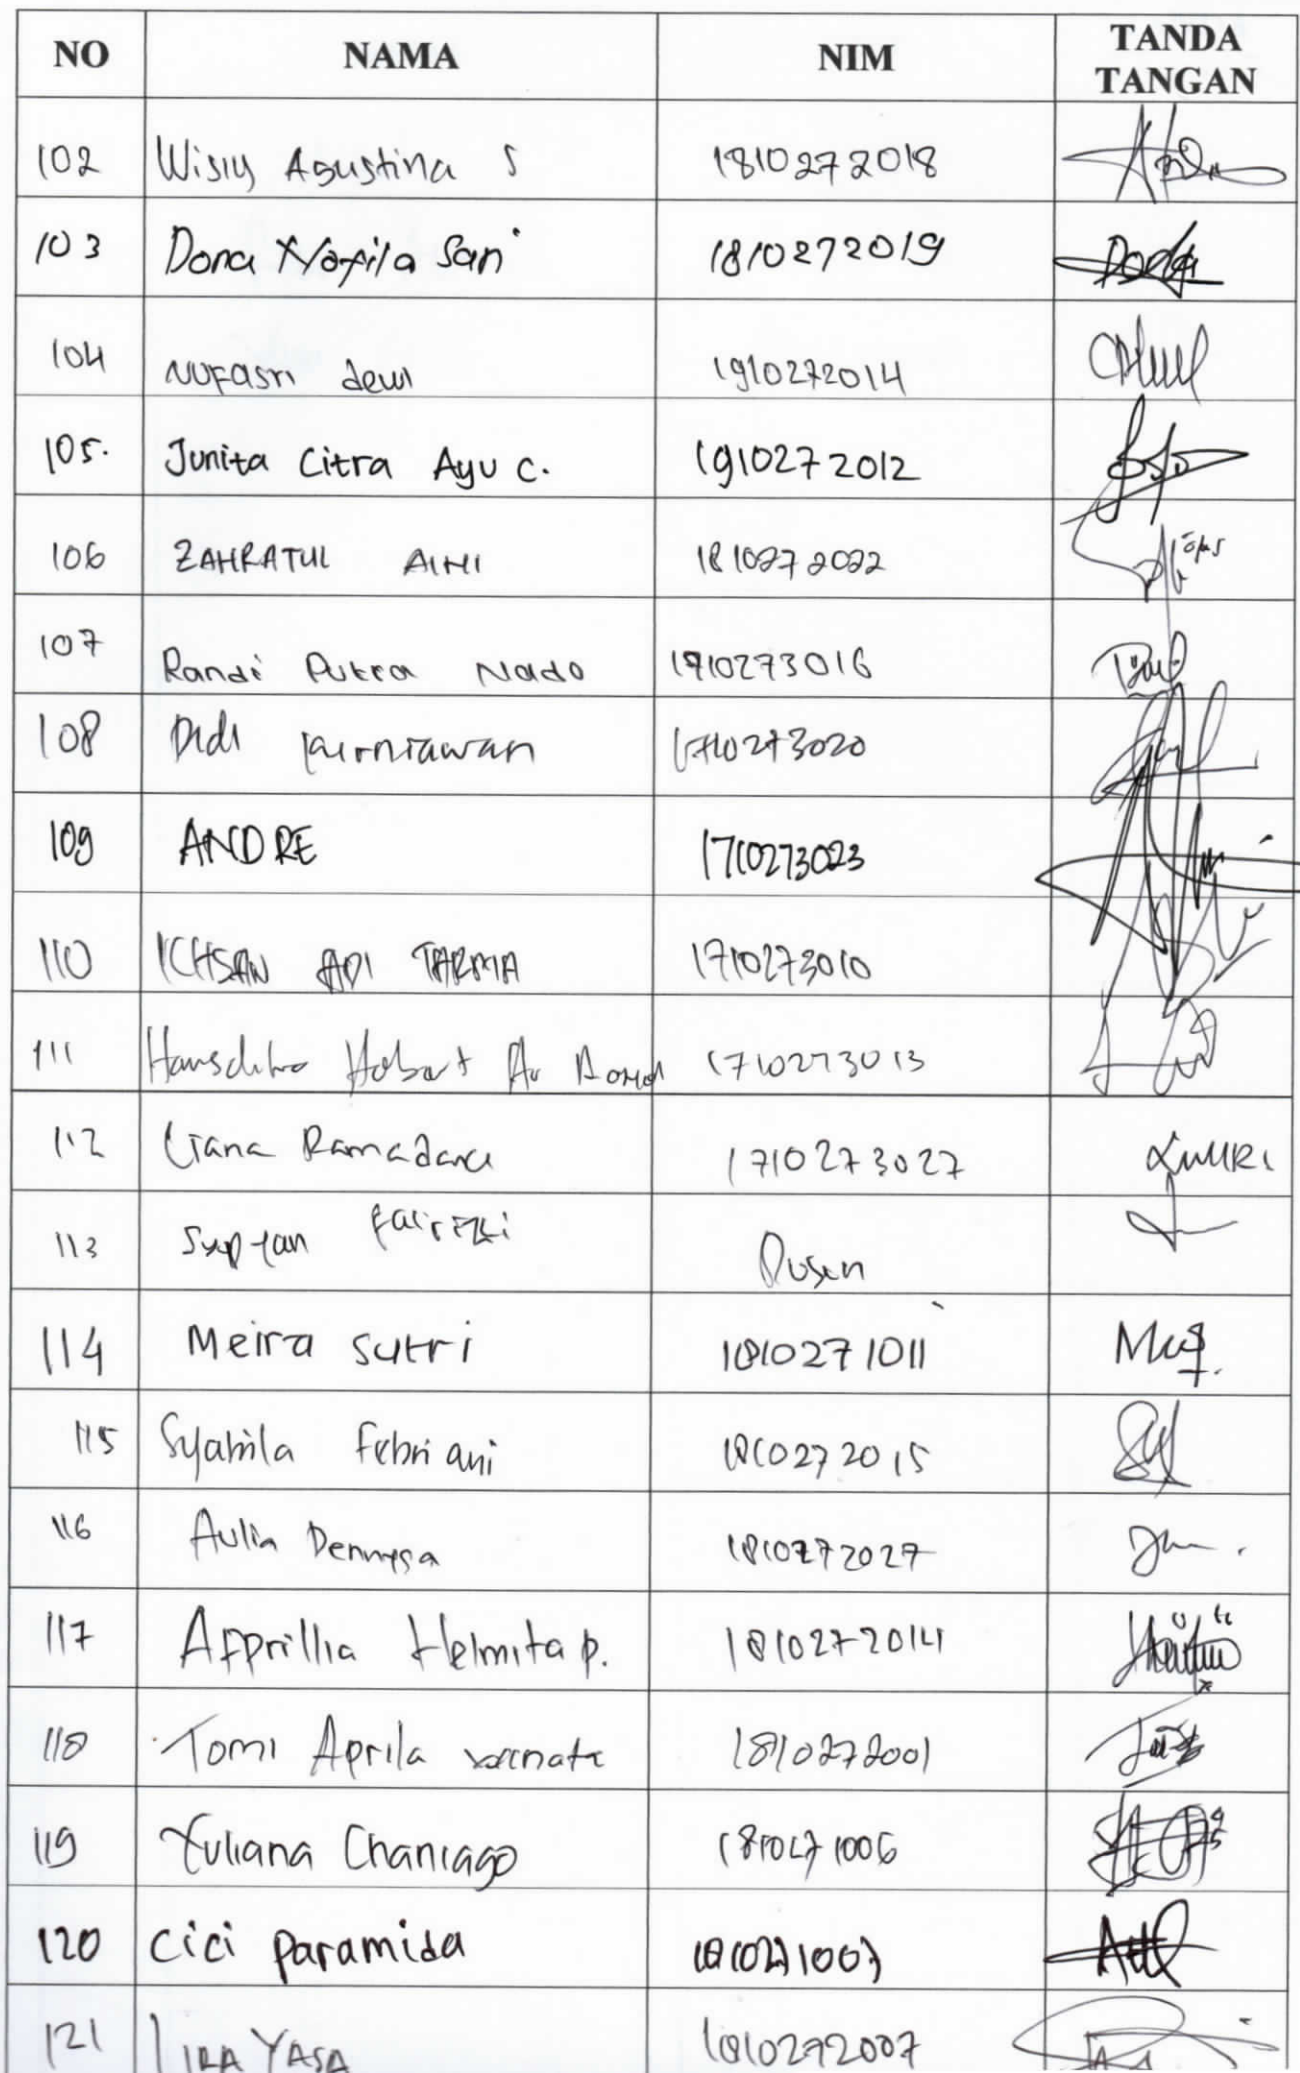 NO NAMA NIM TANDA TANGAN
102 Wisly Agustina S 1810272018
103 Dona Nofila Sari 1810272019
104 NUFASRI dewi 1910272014
105. Junita Citra Ayu C. 1910272012
106 ZAHRATUL AINI 1810272022
107 Randi Putra Nado 1710273016
108 Didi kurniawan 1710273020
109 ANDRE 1710273023
110 ICHSAN ADI TARMA 1710273010
111 1710273013
112 Liana Ramadana 1710273027
113 Septan fairizki Dosen
114 Meira sutri 1810271011
115 Syabila Febriani 1810272015
116 Aulia Dennysa 1810272027
117 Afprillia Helmita p. 1810272014
118 Tomi Aprila 1810272001
119 Yuliana Chaniago 1810271006
120 Cici paramida 1810271007
121 LIRA YASA 1810272007